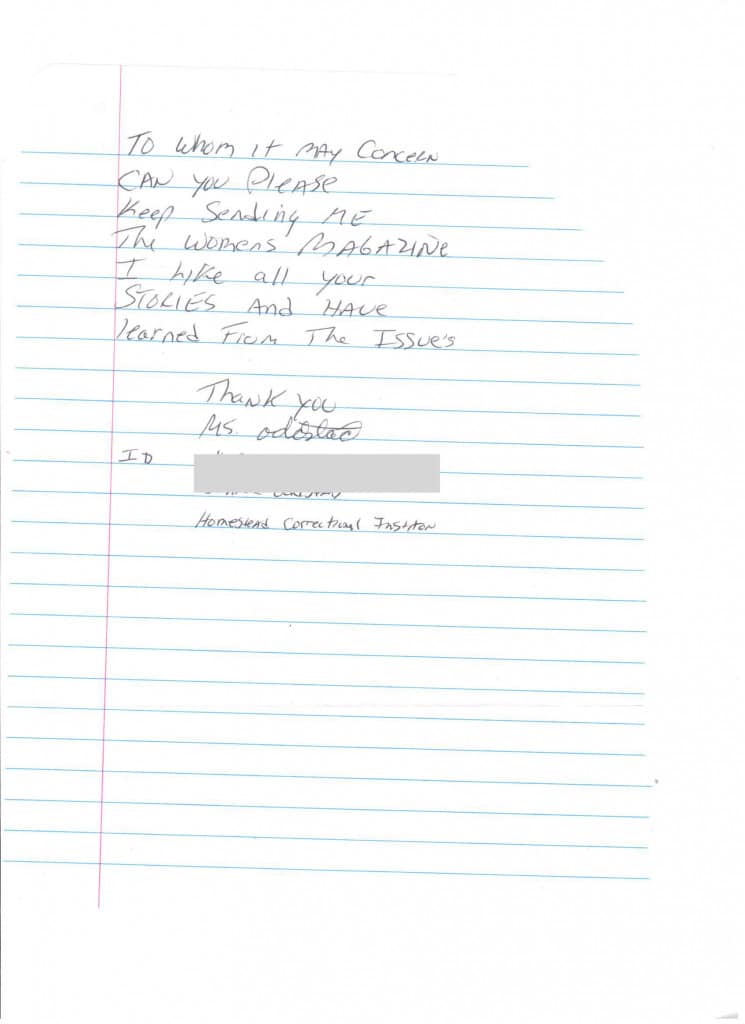 To whom it may Concern
CAN you Please
Keep Sending ME
The womens MAGAZINE
I Like all your
STORIES And HAVE
learned From The Issue's
Thank you
Ms.
ID
Homestead Correctional